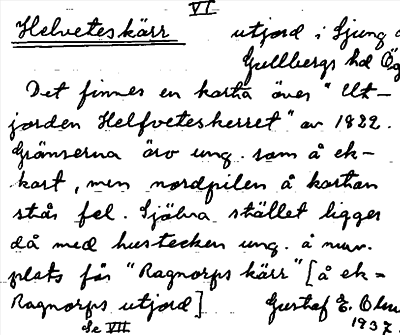 VI
Helveteskärr utjord i Ljung
Gullbergs hd Ög
Det finnes en karta över "Ut-
jorden Helfveteskerret" av 1822.
Gränserna äro ung. som å ek-
kart, men nordpilen å kartan
står fel. Själva stället ligger
då med hustecken ung. å nuv.
plats för "Ragnorps kärr" [å ek-
Ragnorps utjord] Gustaf E.
se VII 1937.